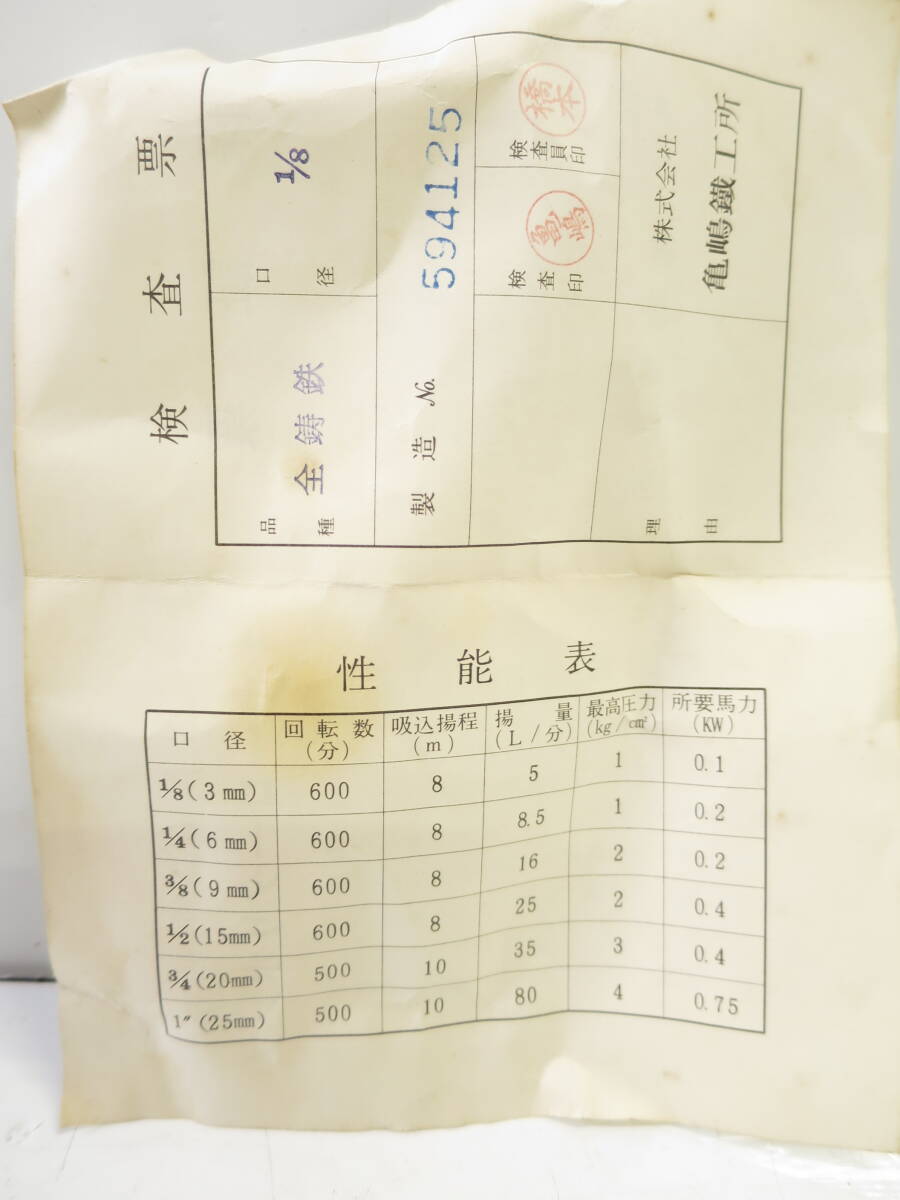 検査票
品種 全鋳鉄 口径 1/8
製造 No. 594125
検査印 亀嶋 検査員印 橋本
理由
株式会社
亀嶋鐵工所
性能表
口径 回転数(分) 吸込揚程(m) 揚量(L/分) 最高圧力(kg/cm²) 所要馬力(KW)
1/8(3mm) 600 8 5 1 0.1
1/4(6mm) 600 8 8.5 1 0.2
3/8(9mm) 600 8 16 2 0.2
1/2(15mm) 600 8 25 2 0.4
3/4(20mm) 500 10 35 3 0.4
1″(25mm) 500 10 80 4 0.75